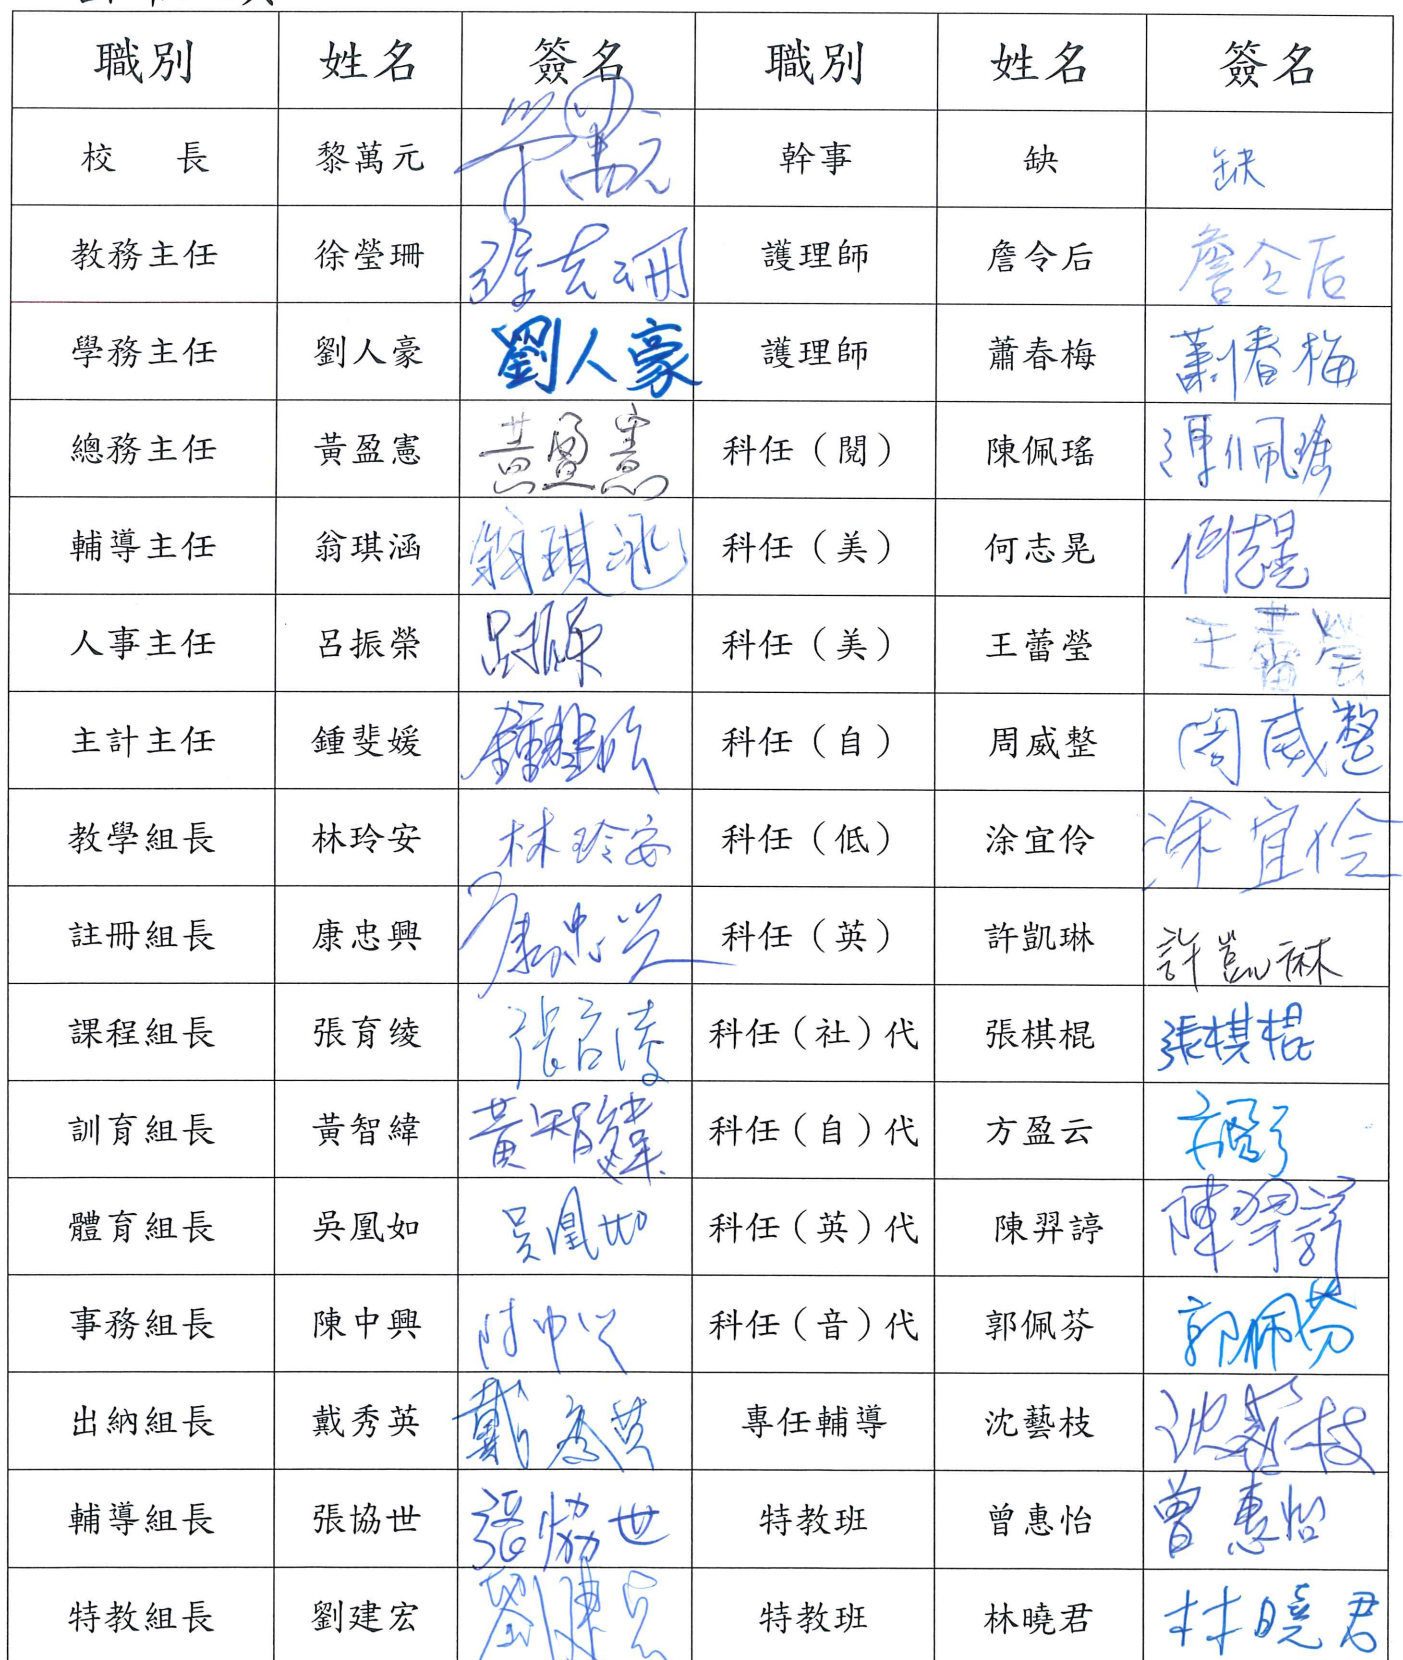 職別 姓名 簽名 職別 姓名 簽名
校 長 黎萬元 幹事 缺 缺
教務主任 徐瑩珊 護理師 詹令后 詹令后
學務主任 劉人豪 劉人豪 護理師 蕭春梅 蕭春梅
總務主任 黃盈憲 黃盈憲 科任（閱） 陳佩瑤 陳佩瑤
輔導主任 翁琪涵 翁琪涵 科任（美） 何志晃 何志晃
人事主任 呂振榮 呂振榮 科任（美） 王蕾瑩 王蕾瑩
主計主任 鍾斐媛 科任（自） 周威整 周威整
教學組長 林玲安 林玲安 科任（低） 涂宜伶 涂宜伶
註冊組長 康忠興 康忠興 科任（英） 許凱琳 許凱琳
課程組長 張育绫 科任（社）代 張棋棍 張棋棍
訓育組長 黃智緯 黃智緯 科任（自）代 方盈云
體育組長 吳凰如 吳凰如 科任（英）代 陳羿諄 陳羿諄
事務組長 陳中興 科任（音）代 郭佩芬 郭佩芬
出納組長 戴秀英 戴秀英 專任輔導 沈藝枝 沈藝枝
輔導組長 張協世 張協世 特教班 曾惠怡 曾惠怡
特教組長 劉建宏 劉建宏 特教班 林曉君 林曉君